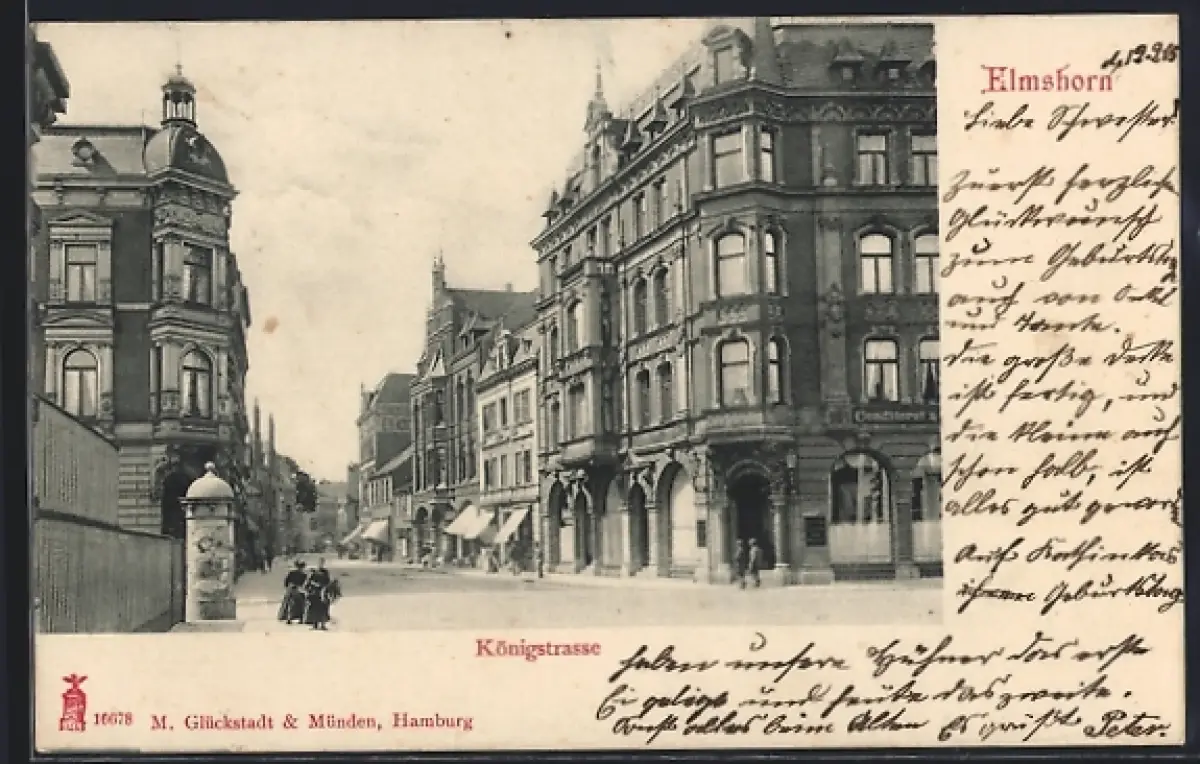 Conditorei &
Elmshorn
Liebe Schwester
Zuerst herzlich
Glückwunsch
zum Geburtstag
auch von Onkel
und Tante.
die große Decke
ist fertig, und
die kleine auch
schon halb, ist
alles gut geword
Auf Kathinkas
ihren Geburtstag
haben unsere Hühner das erste
Ei gelegt und heute das zweite.
Sonst alles beim Alten Es grüßt Peter.
Königstrasse
16678 M. Glückstadt & Münden, Hamburg